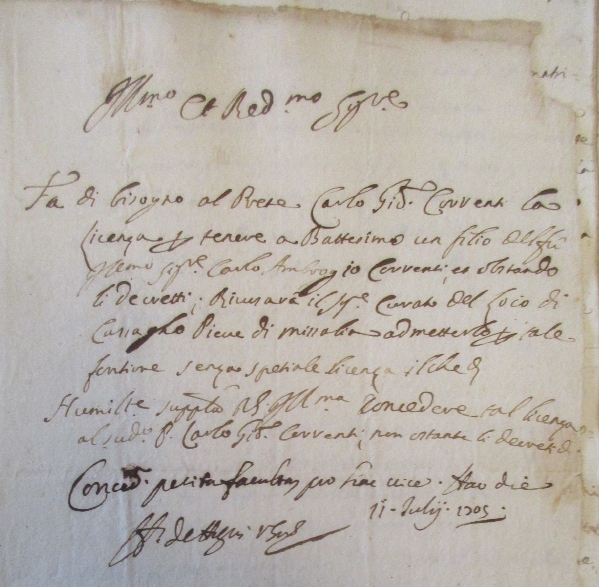 Illmo et Red.mo Sig.re
Fa di bisogno al Prete Carlo Gio. Correnti la
licenza p tenere a Battesimo un filio del
Illmo Sig.re Carlo Ambrogio Correnti, et obstando
li decretti; Ricusarà il Sig.e Curato del Loco di
Cassagho Pieve di missalia admetterlo p tale
fontione senza spetiale licenza il che
Humilte supplta Illma Concedere tal licenza
al sudo P. Carlo Gio. Correnti, non ostante li decreti
Conced. petita facultas pro hac vice. Hac die
11. Julij. 1705.